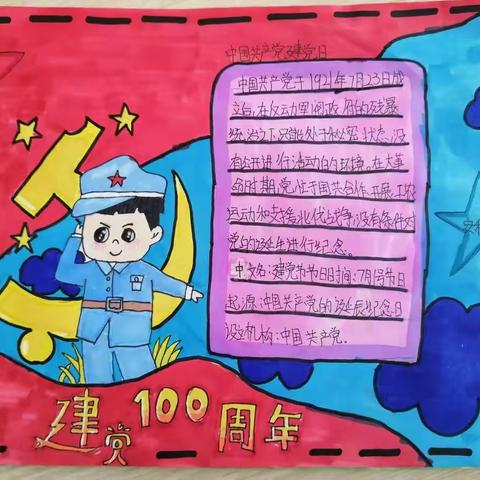 中国共产党建党日
中国共产党于1921年7月23日成
立后,在反动军阀政府的残暴
统治之下,只能处于秘密状态,没
有公开进行活动的环境。在大革
命时期,党忙于国共合作、开展工农
运动和支援北伐战争,没有条件对
党的诞生进行纪念。
中文名:建党节节日时间:7月1号节日
起源:中国共产党的诞辰纪念日
设立机构:中国共产党.
建党100周年